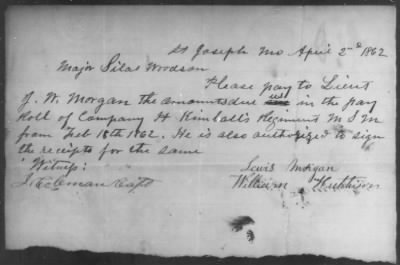 St Joseph Mo April 2nd 1862
Major Silas Woodson
Please pay to Lieut
J. W. Morgan the amounts due us in the pay
Roll of Company H Kimball's Regiment M S M
from Feb 18th 1862. He is also authorized to sign
the receipts for the same
Witness: Lewis Morgan
Coleman Capt William Hutchison